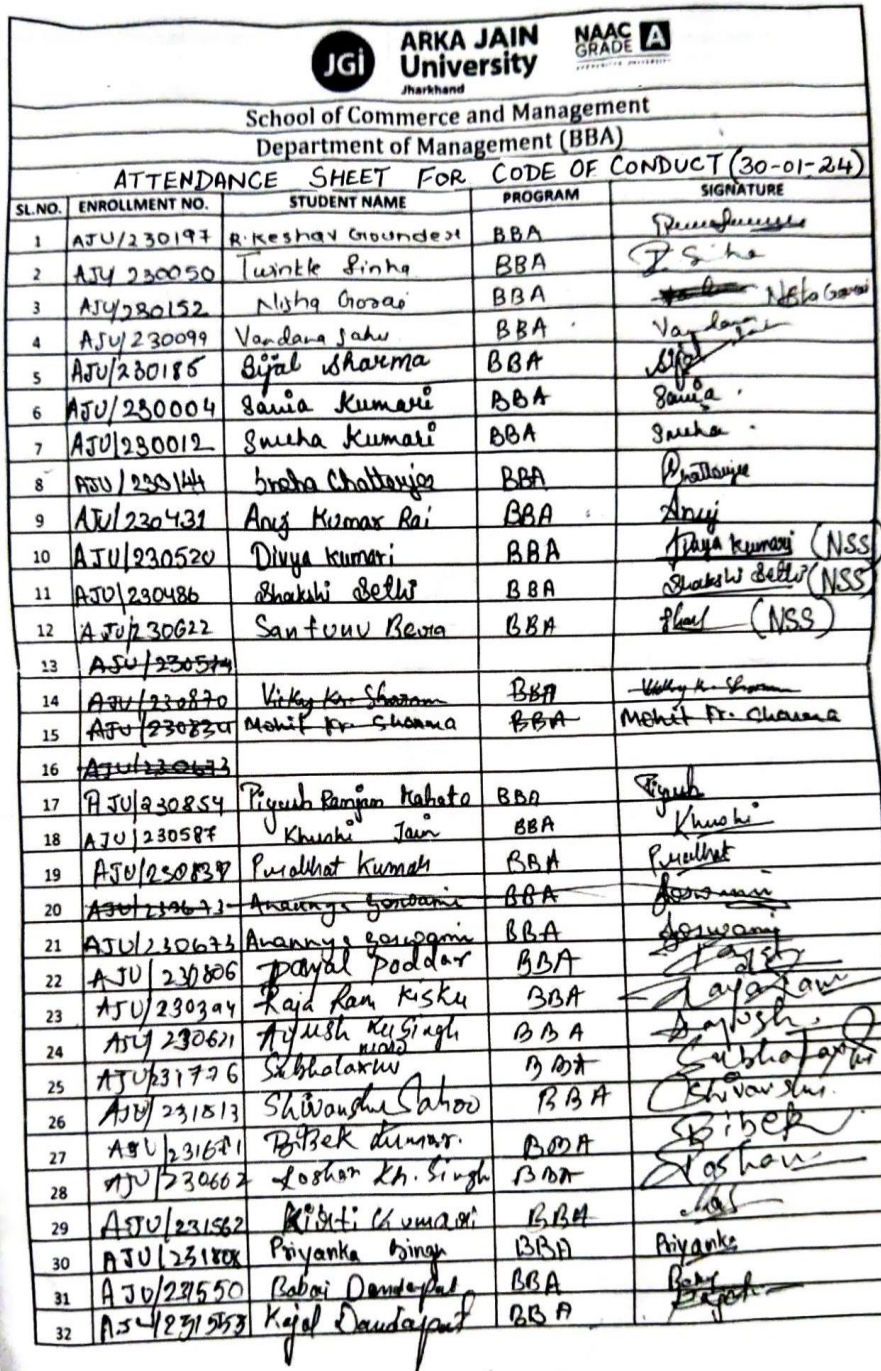 JGi
ARKA JAIN
University
Jharkhand
NAAC
GRADE A
School of Commerce and Management
Department of Management (BBA)
ATTENDANCE SHEET FOR CODE OF CONDUCT (30-01-24)
SL.NO. ENROLLMENT NO. STUDENT NAME PROGRAM SIGNATURE
1 AJU/230197 R. Keshav Gounder BBA
2 AJU 230050 Twinkle Sinha BBA T. Sinha
3 AJU/230152 Nisha Gorai BBA Nisha Gorai
4 AJU/230099 Vandana Sahu BBA Vandana
5 AJU/230185 Bijal Sharma BBA
6 AJU/230004 Sania Kumari BBA Sania
7 AJU/230012 Sneha Kumari BBA Sneha
8 AJU/230144 Sneha Chatterjee BBA Chatterjee
9 AJU/230431 Anuj Kumar Rai BBA Anuj
10 AJU/230520 Divya Kumari BBA Divya Kumari (NSS)
11 AJU/230486 Shakshi Sethi BBA Shakshi Sethi (NSS)
12 AJU/230622 Santunu Bera BBA (NSS)
13 AJU/230574
14 AJU/230870 Vicky Kr. Sharam BBA Vicky Kr. Sharam
15 AJU/230834 Mohit Kr. Sharma BBA Mohit Kr. Sharma
16 AJU/230673
17 AJU/230854 Piyush Ranjan Mahato BBA Piyush
18 AJU/230587 Khushi Jain BBA Khushi
19 AJU/230839 Purabhat Kumar BBA Purabhat
20 AJU/230673 Anannya Goswami BBA Goswami
21 AJU/230673 Anannya Goswami BBA Goswami
22 AJU/230806 Payal Poddar BBA Payal
23 AJU/230394 Raja Ram Kisku BBA Raja Ram
24 AJU/230621 Ayush Ku Singh BBA Ayush
25 AJU/231776 Subhalaxmi BBA Subhalaxmi
26 AJU/231813 Shivanshu Sahoo BBA Shivanshu
27 AJU/231671 Bibek Kumar. BBA Bibek
28 AJU/230662 Roshan Kr. Singh BBA Roshan
29 AJU/231562 Kirti Kumari BBA
30 AJU/231808 Priyanka Singh BBA Priyanka
31 AJU/231550 Babai Dandapat BBA
32 AJU/231553 Kajal Dandapat BBA